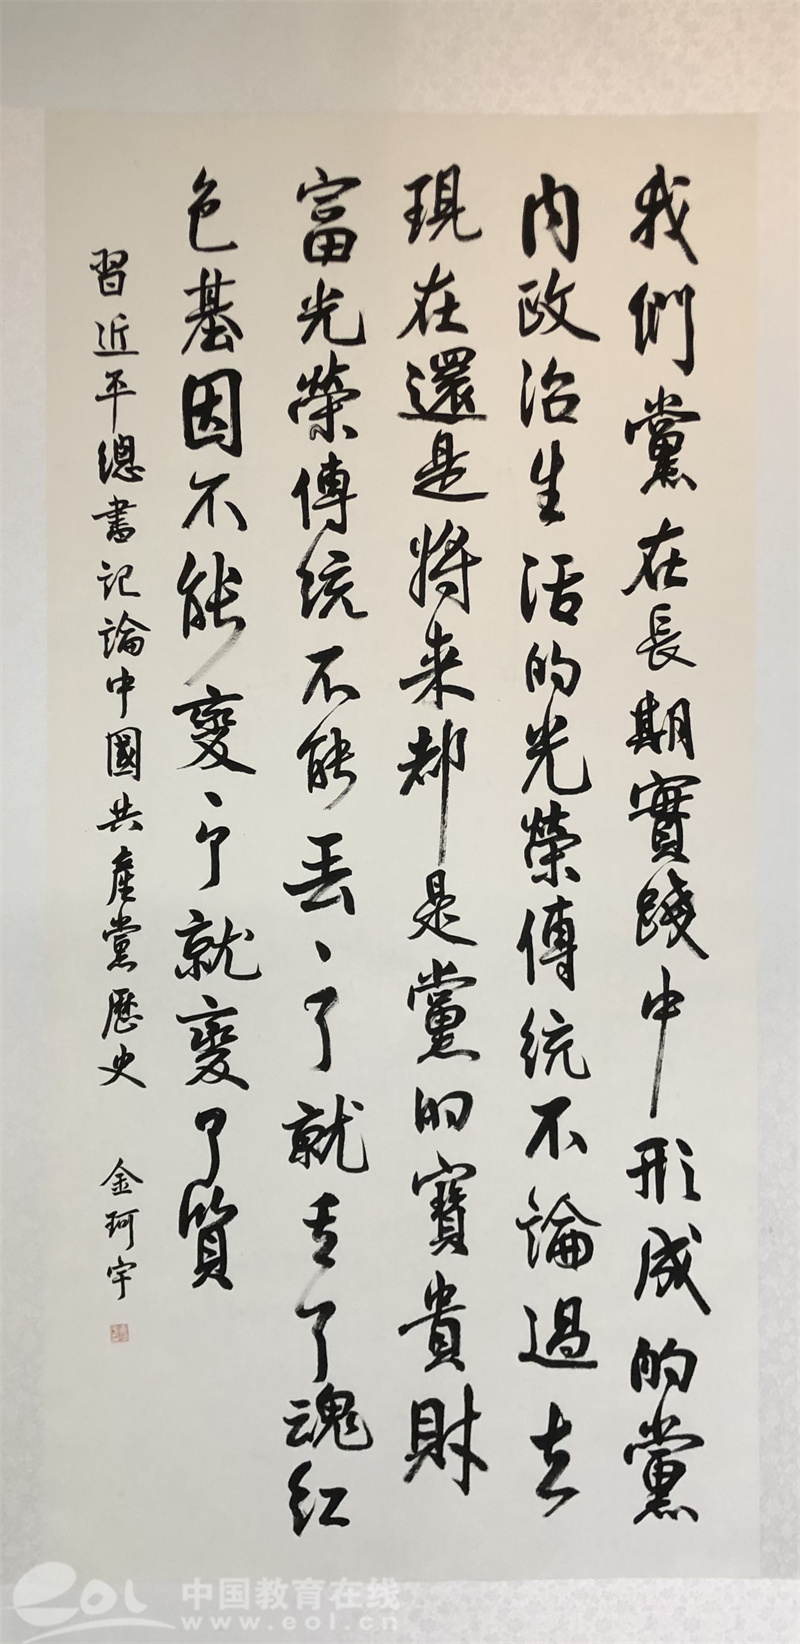 我們黨在長期實踐中形成的黨
内政治生活的光榮傳統不論過去
現在還是將来都是黨的寶貴財
富光榮傳統不能丟丶了就丟了魂紅
色基因不能變丶了就變了質
習近平總書記論中國共產黨歷史 金珂宇
eol 中国教育在线
www.eol.cn